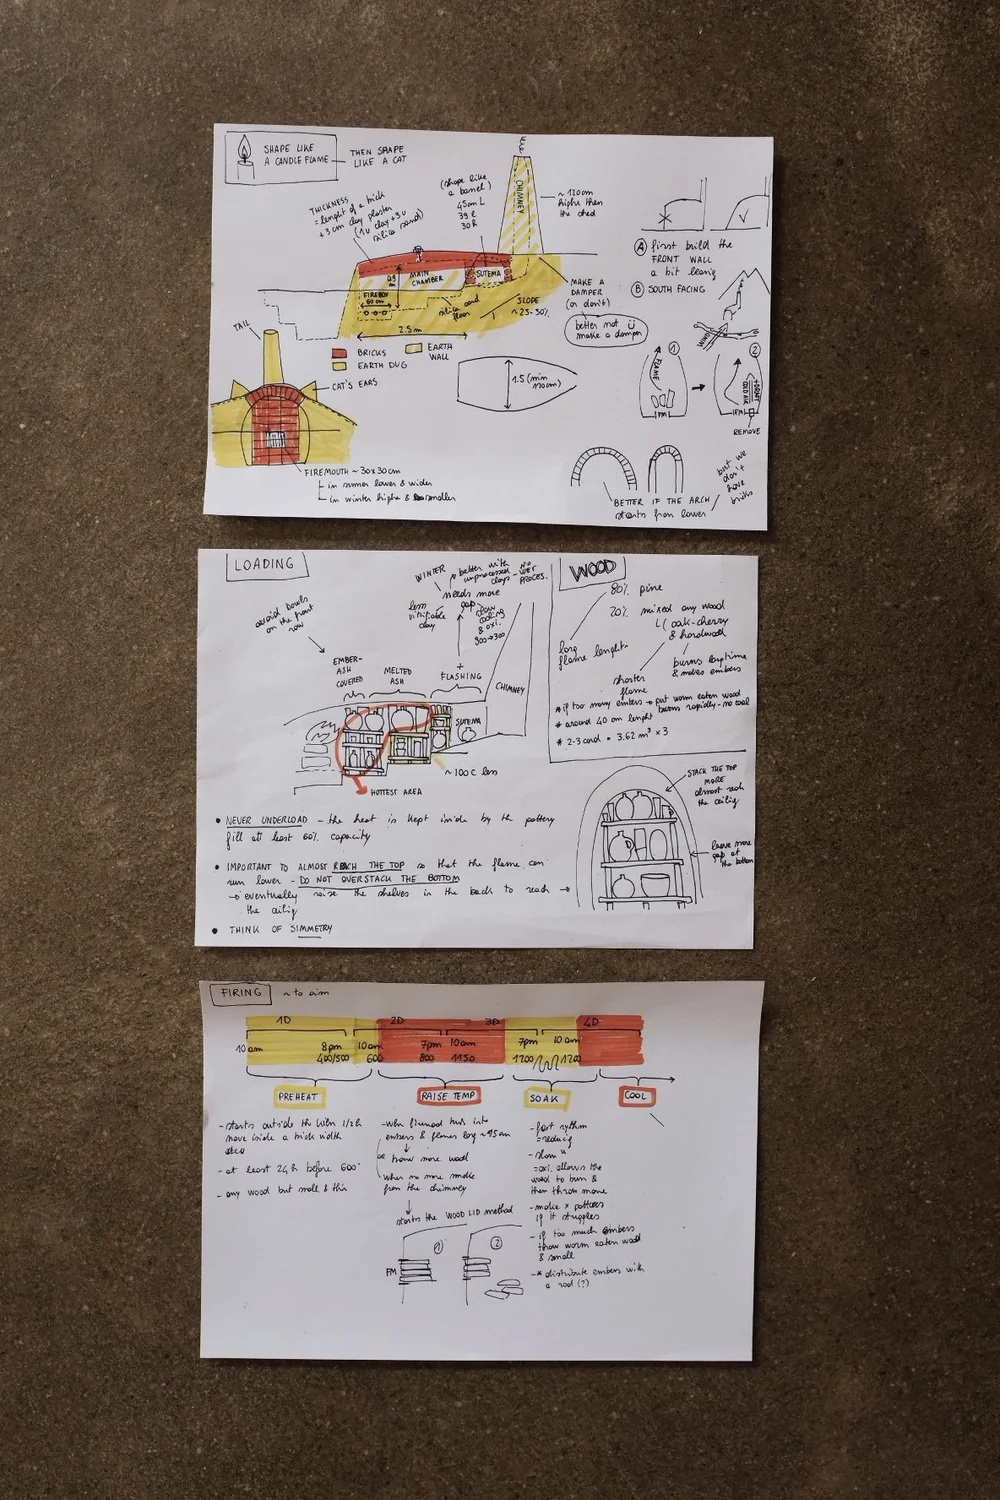 SHAPE LIKE
A CANDLE FLAME
THEN SHAPE
LIKE A CAT
THICKNESS
= lenght of a brick
+3 cm clay plaster
silica sand)
(shape like
a barrel)
45cm L
39 l
30 h
CHIMNEY
~ 120cm
the shed
MAIN
CHAMBER
SUTEMA
0.9
m
FIREBOX
60 cm
silica sand
floor
SLOPE
~ 25-30%
2.5m
MAKE A
DAMPER
(or don't)
better not
make a damper
A first build the
FRONT WALL
a bit leanig
B SOUTH FACING
WIND
1
FLAME
FM
2
COLD AIR
FM
REMOVE
BRICKS
EARTH DUG
EARTH
WALL
1.5 (min
120cm)
TAIL
CAT'S EARS
FIREMOUTH ~ 30x30cm
in summer lower & wider
in winter higher & smaller
BETTER IF THE ARCH
starts from lower
but we
don't
have
bricks
LOADING
avoid bowls
on the front
row
WINTER
better with
unprocessed
clays
- NO
WET
PROCES.
needs more
gap
less
vitrifiable
clay
slow
cooling
& oxi.
900→300
EMBER-
ASH
COVERED
MELTED
ASH
+
FLASHING
CHIMNEY
SUTEMA
~ 100 C less
HOTTEST AREA
• NEVER UNDERLOAD - the heat is kept inside by the pottery
fill at least 60% capacity
• IMPORTANT TO ALMOST REACH THE TOP so that the flame can
run lower - DO NOT OVERSTACK THE BOTTOM
→ eventually raise the shelves in the back to reach →
the ceilig
• THINK OF SIMMETRY
WOOD
80% pine
20% mixed any wood
( oak-cherry
& hardwood
long
flame lenght
shorter
flame
burns longtime
& makes embers
* if too many embers → put worm eaten wood
burns rapidly - no coal
* around 40 cm lenght
* 2-3 cord = 3.62 m³ x 3
STACK THE TOP
MORE
almost reach
the ceilig
leave more
gap at
the bottom
FIRING ~ to aim
1D 2D 3D 4D
10am 8pm 10am 7pm 10am 7pm 10am
400/500 600 800 1150 1200 1200
PREHEAT
RAISE TEMP
SOAK
COOL
- starts outside the kiln 1/2h
move inside a brick width
- at least 24h before 600°
- any wood but small & thin
embers & flames
throw more wood
when no more smoke
from the chimney
starts the WOOD LID method
1
2
FM
- fast rythm
= reducing
- slow "
= oxi. allows the
wood to burn &
then throw more
if it struggles
- if too much embers
throw worm eaten wood
& small
- * distribute embers with
a rod (?)